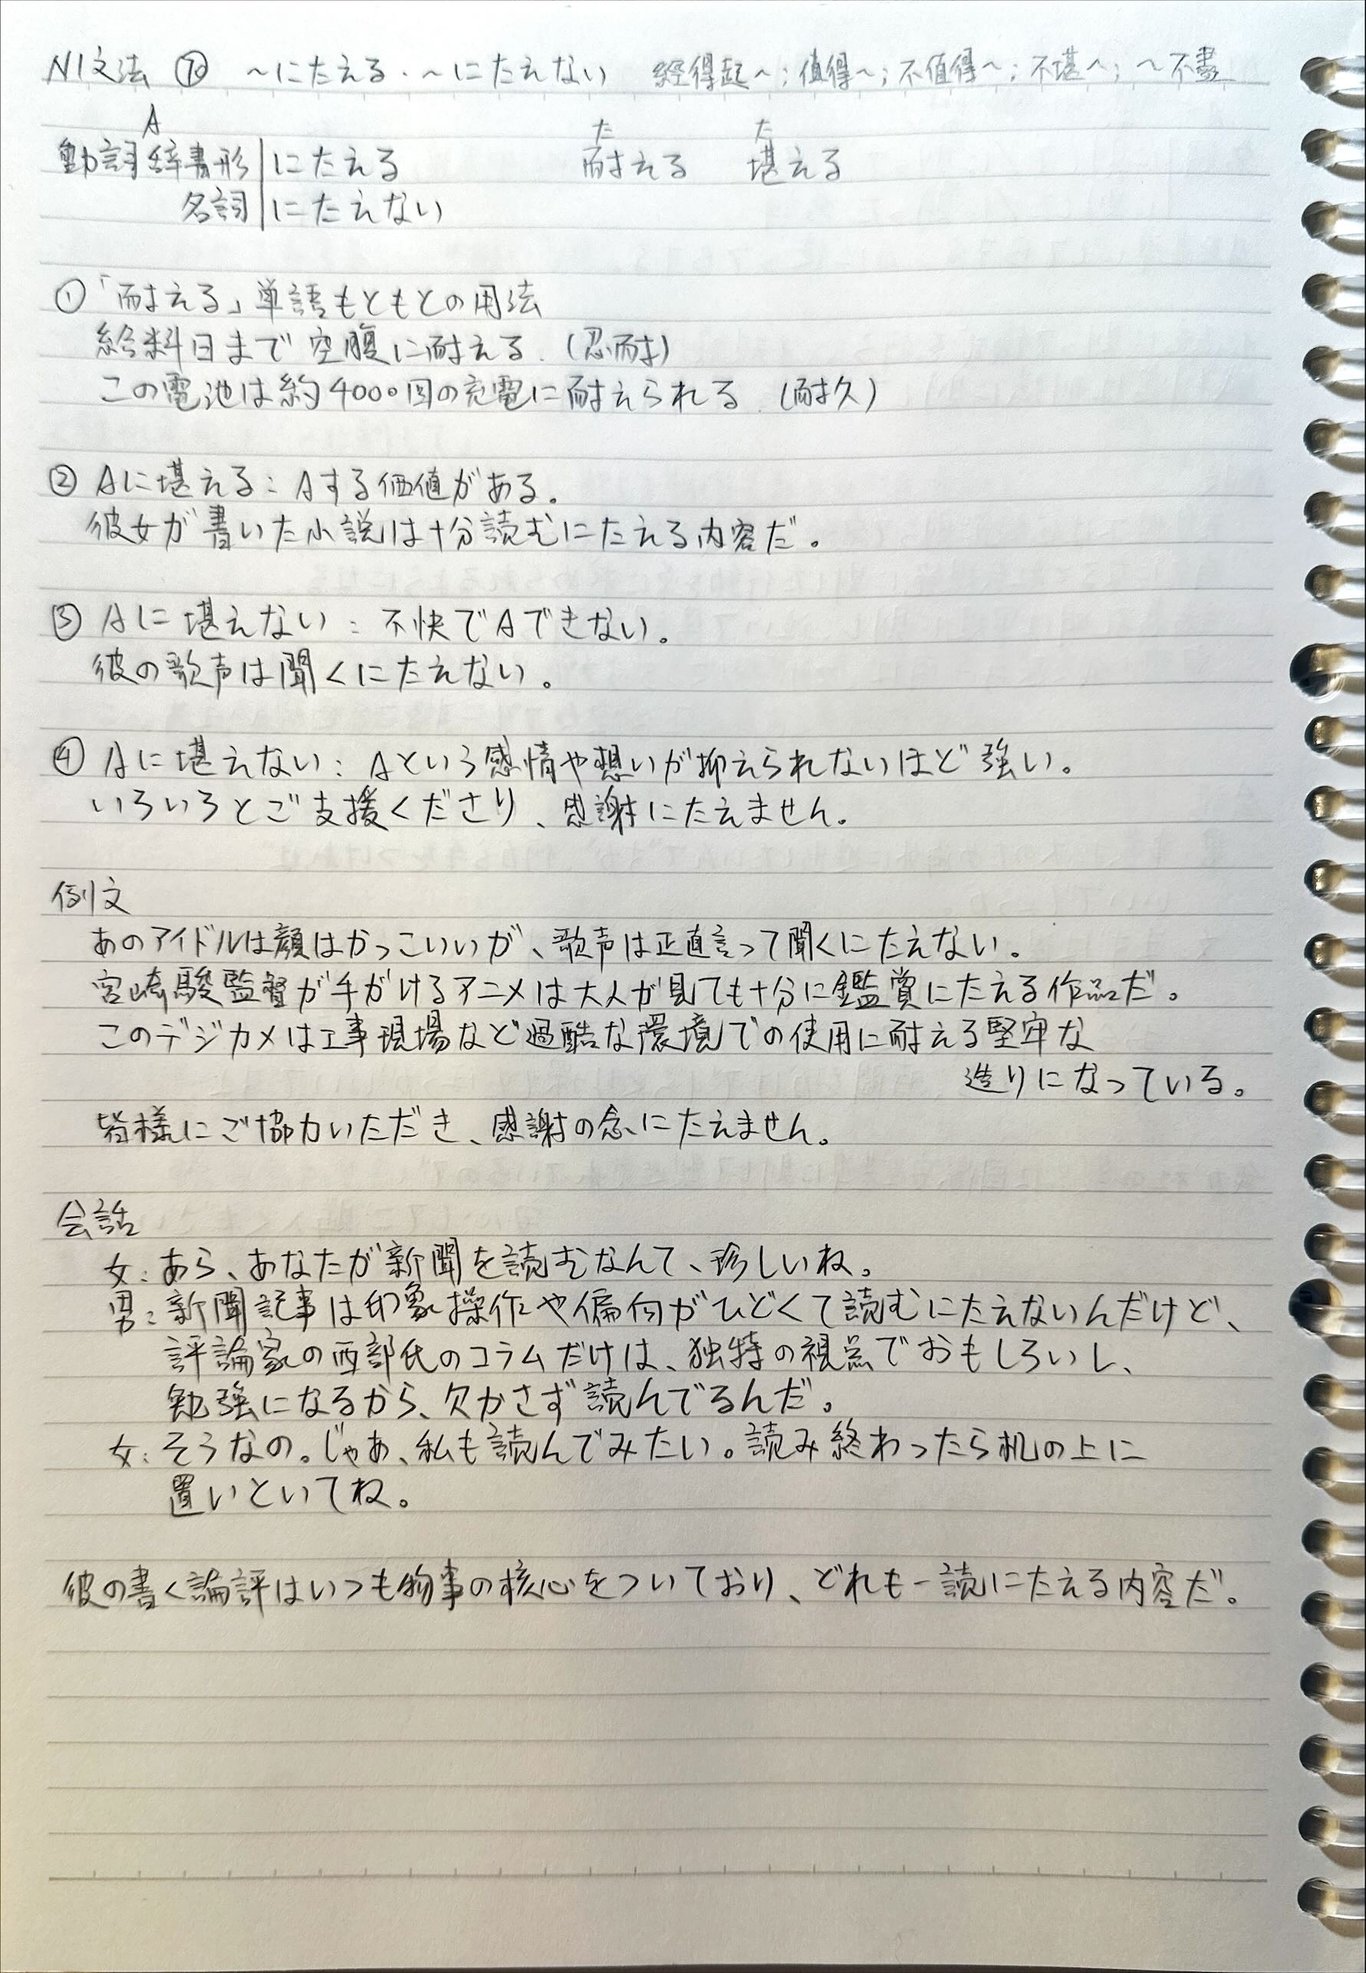 N1文法 ⑦⓪ ～にたえる・～にたえない 經得起～；值得～；不值得～；不堪～；～不盡
A
動詞辞書形 にたえる た耐える た堪える
名詞 にたえない
①「耐える」単語もともとの用法
給料日まで空腹に耐える。(忍耐)
この電池は約4000回の充電に耐えられる。(耐久)
② Aに堪える：Aする価値がある。
彼女が書いた小説は十分読むにたえる内容だ。
③ Aに堪えない：不快でAできない。
彼の歌声は聞くにたえない。
④ Aに堪えない：Aという感情や想いが抑えられないほど強い。
いろいろとご支援くださり、感謝にたえません。
例文
あのアイドルは顔はかっこいいが、歌声は正直言って聞くにたえない。
宮崎駿監督が手がけるアニメは大人が見ても十分に鑑賞にたえる作品だ。
このデジカメは工事現場など過酷な環境での使用に耐える堅牢な
造りになっている。
皆様にご協力いただき、感謝の念にたえません。
会話
女：あら、あなたが新聞を読むなんて、珍しいね。
男：新聞記事は印象操作や偏向がひどくて読むにたえないんだけど、
評論家の西部氏のコラムだけは、独特の視点でおもしろいし、
勉強になるから、欠かさず読んでるんだ。
女：そうなの。じゃあ、私も読んでみたい。読み終わったら机の上に
置いといてね。
彼の書く論評はいつも物事の核心をついており、どれも一読にたえる内容だ。